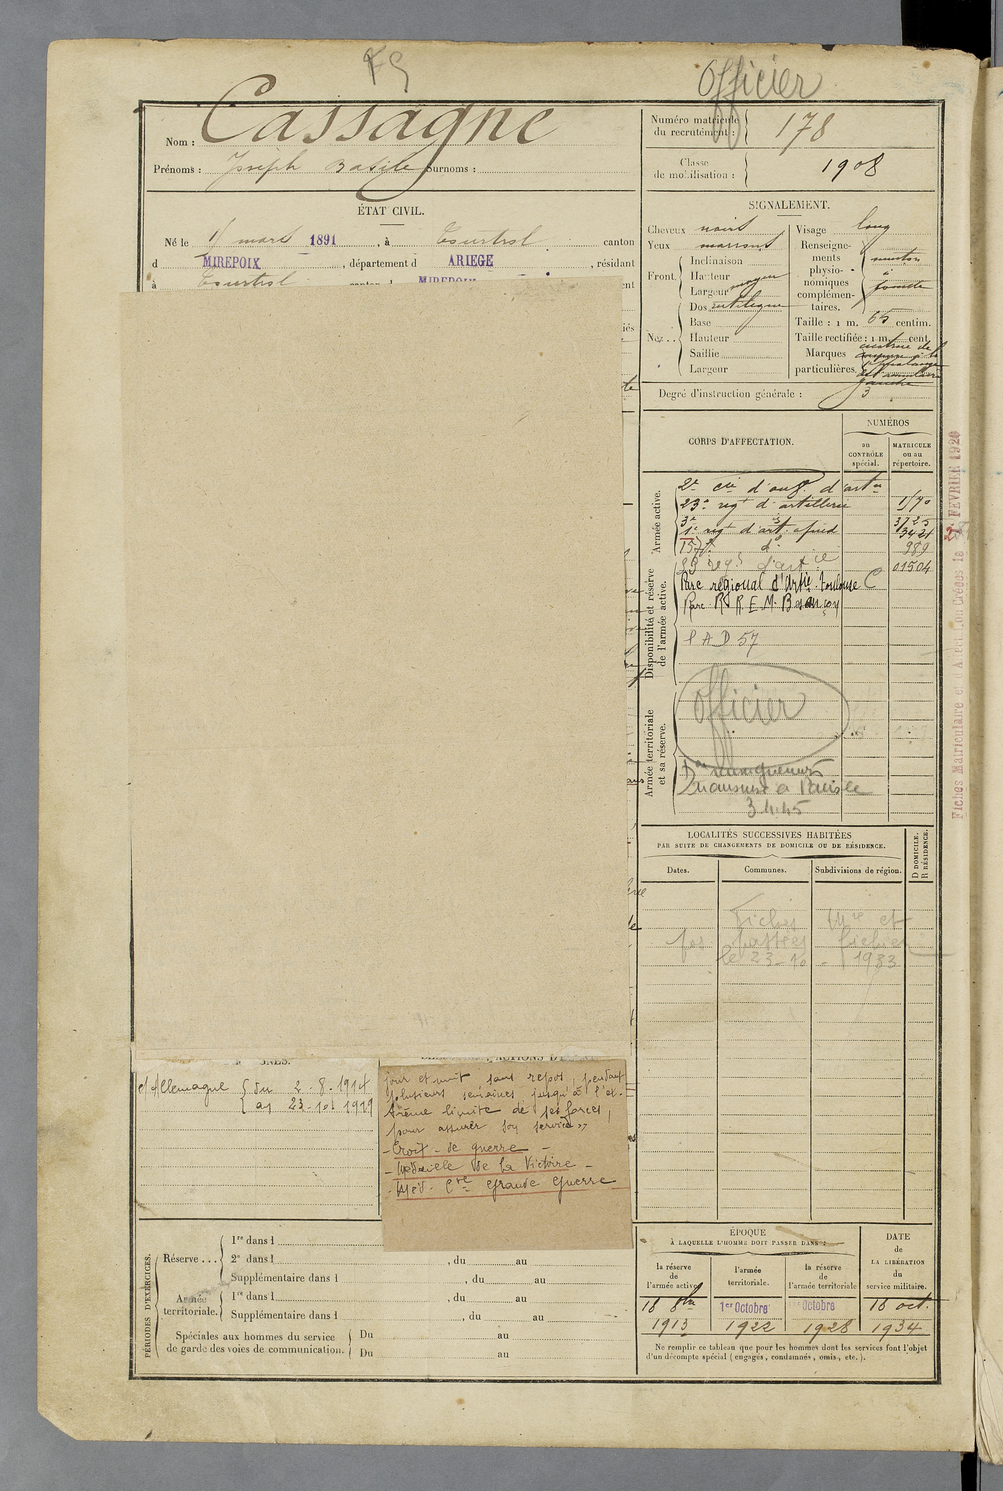 FG
Officier
Nom : Cassagne
Prénoms : Joseph Basile Surnoms :
Numéro matricule du recrutement : 178
Classe de mobilisation : 1908
ÉTAT CIVIL.
Né le mars 1891, à Tourtrol canton
d MIREPOIX, département d ARIEGE, résidant
à Tourtrol canton d MIREPOIX
SIGNALEMENT.
Cheveux noirs
Yeux marrons
Front.
Inclinaison
Hauteur
Largeur moyen
Nez..
Dos rectiligne
Base
Hauteur
Saillie
Largeur
Visage long
Renseignements physionomiques complémentaires. menton à fossette
Taille : 1 m. 65 centim.
Taille rectifiée : 1 m. cent.
Marques particulières. gauche
Degré d'instruction générale : 3
CORPS D'AFFECTATION.
NUMÉROS
au CONTRÔLE spécial.
MATRICULE ou au répertoire.
Armée active.
2e cie d'ouv. d'artie
23e regt d'artillerie
3e regt d'art. à pied 3725
3421
157e do 989
29 regt d'artie 01504
Disponibilité et réserve de l'armée active.
Parc régional d'Artie Toulouse C
Parc R.R.E.M. Besançon
P A D 57
Armée territoriale et sa réserve.
Officier
Fiches Matriculaire et d'Affectation Créées le FEVRIER 1920
LOCALITÉS SUCCESSIVES HABITÉES
PAR SUITE DE CHANGEMENTS DE DOMICILE OU DE RÉSIDENCE.
Dates.
Communes.
Subdivisions de région.
D DOMICILE.
R RÉSIDENCE.
Fiches Mle et
fichier
le 23-10-1933
c/ Allemagne { du 2.8.1914
{ au 23.10.1919
jour et nuit, sans repos, pendant
plusieurs semaines jusqu'à l'ex-
trême limite de ses forces,
pour assurer son service »
- Croix de guerre -
- Médaille de la Victoire -
- Méd. Cve Grande Guerre
PÉRIODES D'EXERCICES.
Réserve...
1re dans l
2e dans l , du au
Supplémentaire dans l , du au
Armée territoriale.
1re dans l , du au
Supplémentaire dans l , du au
Spéciales aux hommes du service de garde des voies de communication.
Du au
Du au
ÉPOQUE
À LAQUELLE L'HOMME DOIT PASSER DANS :
la réserve de l'armée active
l'armée territoriale.
la réserve de l'armée territoriale
DATE de LA LIBÉRATION du service militaire.
16 8bre 1913
1er Octobre 1922
Octobre 1928
16 oct. 1934
Ne remplir ce tableau que pour les hommes dont les services font l'objet
d'un décompte spécial (engagés, condamnés, omis, etc.).